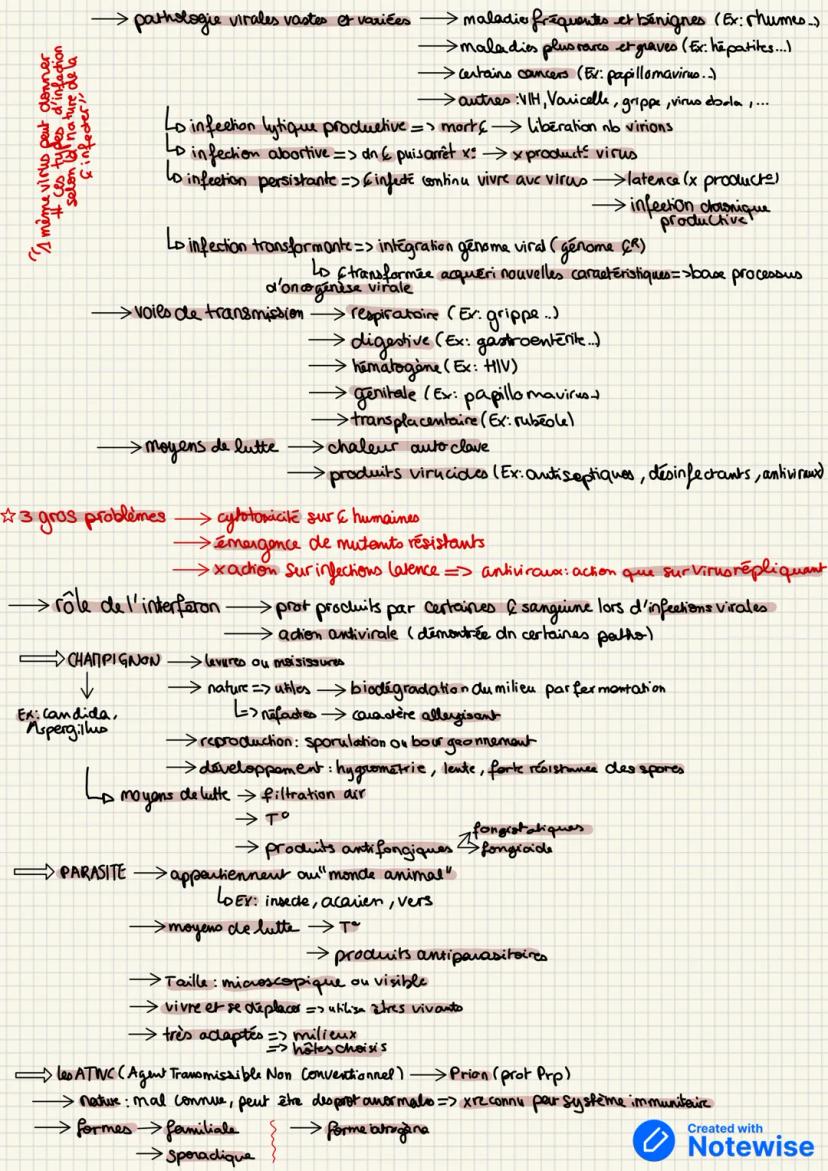 → pathologie virales vastes et variées → maladies fréquentes et bénignes (Ex: rhumes..)
→ maladies plus rares et graves (Ex: hépatites...)
→ certains cancers (Ex: papillomavirus..)
→ autres: VIH, Varicelle, grippe, virus ebola, ...
"1 même virus peut donner
≠ ces types d'infection
selon la nature de la
¢ infecter"
↳ infection lytique productive => mort ¢ → libération nb virions
↳ infection abortive => dn ¢ puis arrêt x° → x product° virus
↳ infection persistante => ¢ infecté continu vivre avc virus → latence (x product°)
→ infection chronique
productive
↳ infection transformante => intégration génome viral (génome ¢R)
↳ ¢ transformée acquéri nouvelles caractéristiques => base processus
d'oncogénèse virale
→ voies de transmission → respiratoire (Ex: grippe ..)
→ digestive (Ex: gastroentérite..)
→ hématogène (Ex: HIV)
→ génitale (Ex: papillomavirus..)
→ transplacentaire (Ex: rubéole)
→ moyens de lutte → chaleur autoclave
→ produits virucides (Ex: antiseptiques, désinfectants, antiviraux)
☆ 3 gros problèmes → cytotoxicité sur ¢ humaines
→ émergence de mutants résistants
→ x action sur infections latence => antiviraux: action que sur virus répliquant
→ rôle de l'interféron → prot produits par certaines ¢ sanguine lors d'infections virales
→ action antivirale (démontrée dn certaines patho)
⇒ CHAMPIGNON → levures ou moisissures
↓ → nature => utiles → biodégradation du milieu par fermentation
Ex: candida,
Aspergillus
↳ néfastes → caractère allergisant
→ reproduction: sporulation ou bourgeonnement
→ développement: hygrométrie, lente, forte résistance des spores
↳ moyens de lutte → filtration air
→ T°
→ produits antifongiques → fongistatiques
→ fongicide
⇒ PARASITE → appartiennent au "monde animal"
↳ Ex: insecte, acarien, vers
→ moyens de lutte → T°
→ produits antiparasitaires
→ Taille: microscopique ou visible
→ vivre et se déplacer => utilise êtres vivants
→ très adaptés => milieux
=> hôtes choisis
⇒ les ATNC (Agent Transmissible Non Conventionnel) → Prion (prot Prp)
→ nature: mal connue, peut être des prot anormales => x reconnu par système immunitaire
→ formes → familiale → forme iatrogène
→ sporadique
Created with
Notewise